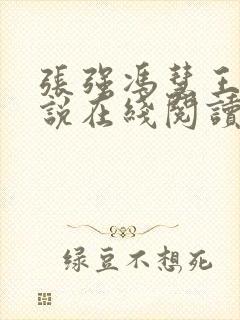 張强馮慧王
説在綫閱讀
绿豆不想死